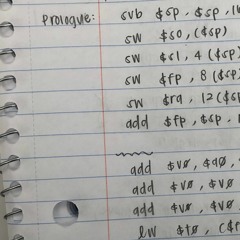 Prologue: sub $sp, $sp, 16
sw $s0, ($sp)
sw $s1, 4($sp)
sw $fp, 8($sp)
sw $ra, 12($sp)
add $fp, $sp,
add $v0, $a0,
add $v0, $v0,
add $v0, $v0,
lw $t0,